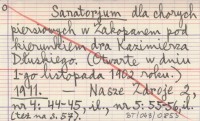 Sanatorjum dla chorych
piersiowych w Zakopanem pod
kierunkiem dra Kazimierza
Dłuskiego. (Otwarte w dniu
1-go listopada 1902 roku.)
1911. — Nasze Zdroje 2,
nr 4: 44-45, il., nr 5: 55-56, il.
(też na s. 57).